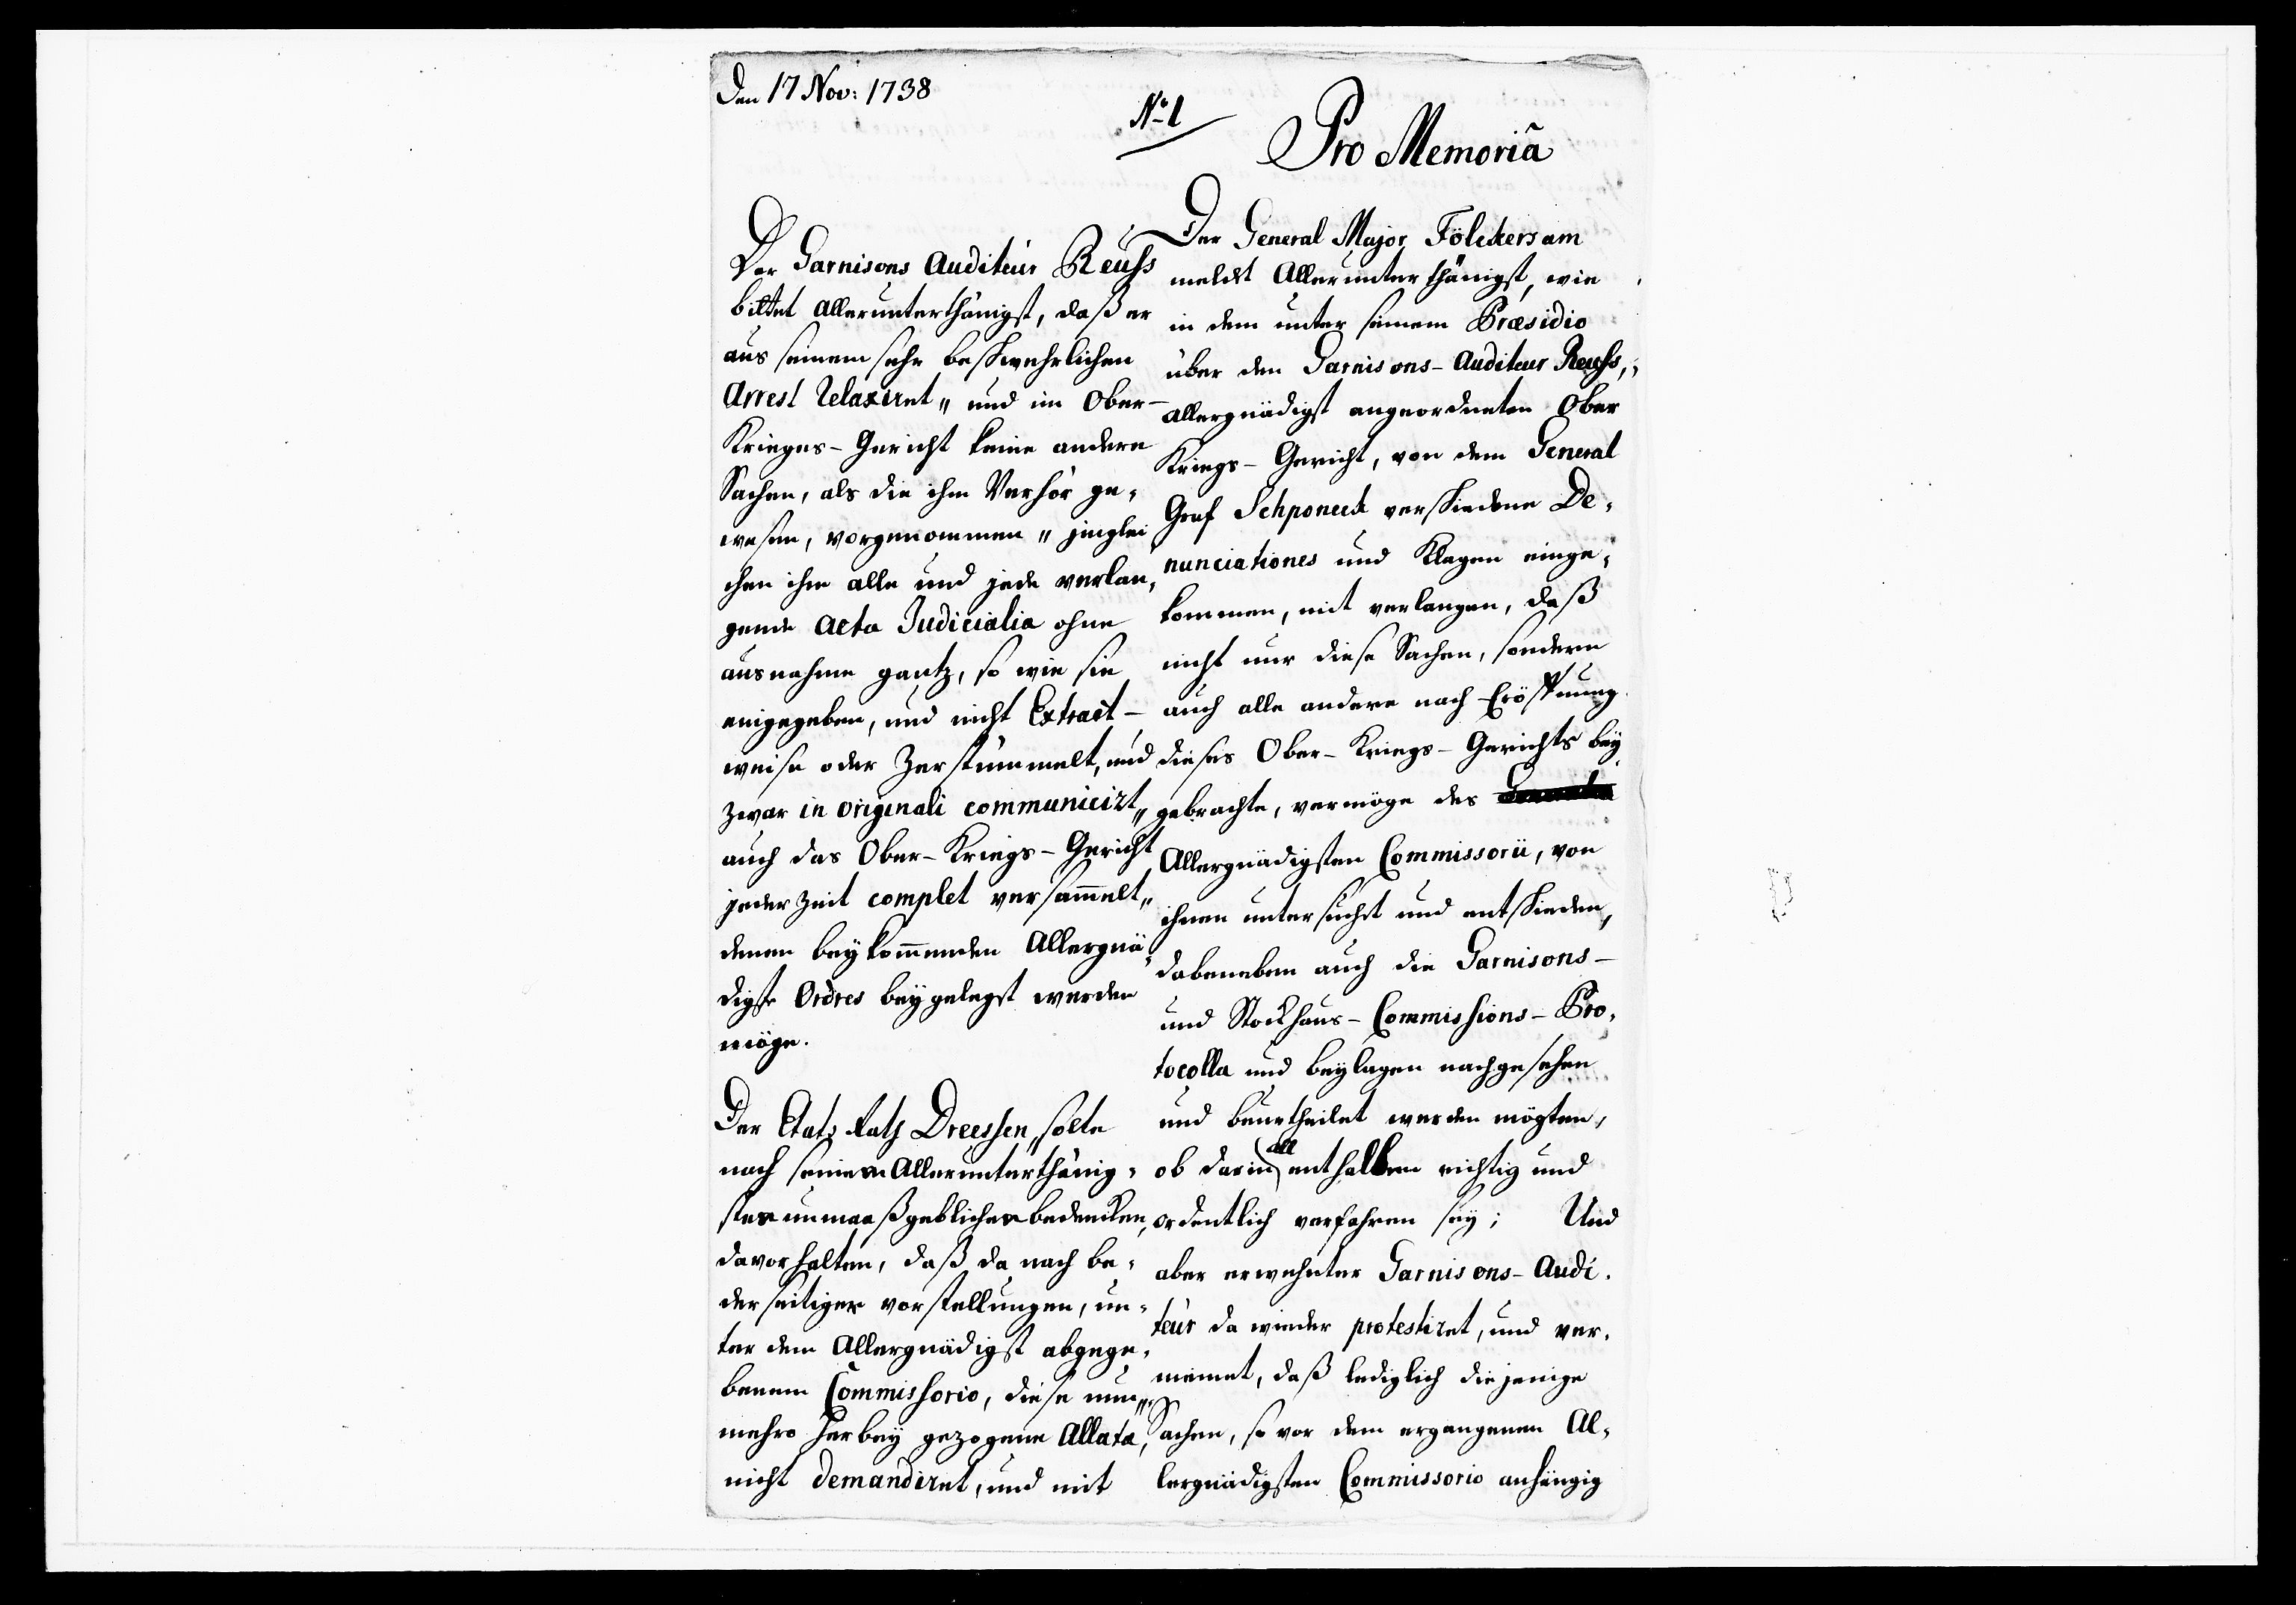 Den 17 Nov: 1738
No 1
Pro Memoriâ
Der Garnisons Auditeur Reuss
bittet allerunterthänigst, daß er
aus seinem sehr beschwehrlichen
Arrest relaxiret" und im Ober-
Krieges-Gericht keine andere
Sachen, als die ihm Verhör ge-
wesen, vorgenommen" jinglei
chen ihm alle und jede verlan-
gende Acta Judicialia ohne
ausnahme gantz, so wie sie
eingegeben, und nicht Extract-
weise oder Zerstümmelt, und
zwar in originali communiciret"
auch das Ober-Kriegs-Gericht
jeder Zeit complet versam̄elt"
denen beykom̄enden Allergnä-
digste Ordres beygelegst werden
möge.
Der Etats Rath Dreessen, solte
nach seinem Allerunterthänig-
sten unmaaßgeblichen bedencken,
davor halten, daß da nach be-
derseitiger vorstellungen, un-
ter dem Allergnädigst abgege-
benem Commissorio, diese nun
mehro herbey gezogene Allata,
nicht demandiret, und mit
Der General Major Fölckersam
meldet Allerunterthänigst, wie
in dem unter seinem Præsidio
über den Garnisons-Auditeur Reuss,
allergnädigst angeordneten Ober
Kriegs-Gericht, von dem General
Graf Schponeck verschiedene De-
nunciationes und Klagen einge-
kommen, mit verlangen, daß
nicht nur diese Sachen, sondern
auch alle andere nach Eröffnung
dieses Ober-Kriegs-Gerichts bey
gebrachte, vermöge des
Allergnädigsten Commissorii, von
ihnen untersucht und entschieden,
dabeneben auch die Garnisons-
und Stockhaus-Commissions-Pro-
tocolla und beylagen nachgesehen
und beurtheilet werden mögten,
ob darin allenthalben richtig und
ordentlich verfahren sey; Und
aber erwehnter Garnisons-Audi-
teur da wieder protestiret, und ver-
meinet, daß lediglich die jenige
Sachen, so vor dem ergangenen Al-
lergnädigsten Commissorio anhängig